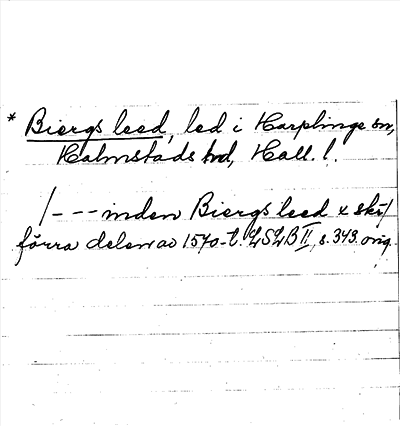 * Biergs leed, led i Harplinge sn,
Halmstads hd, Hall. l.
/--- inden Biergs leed x ski/
förra delen av 1570-t. LSLB II, s. 343. orig.